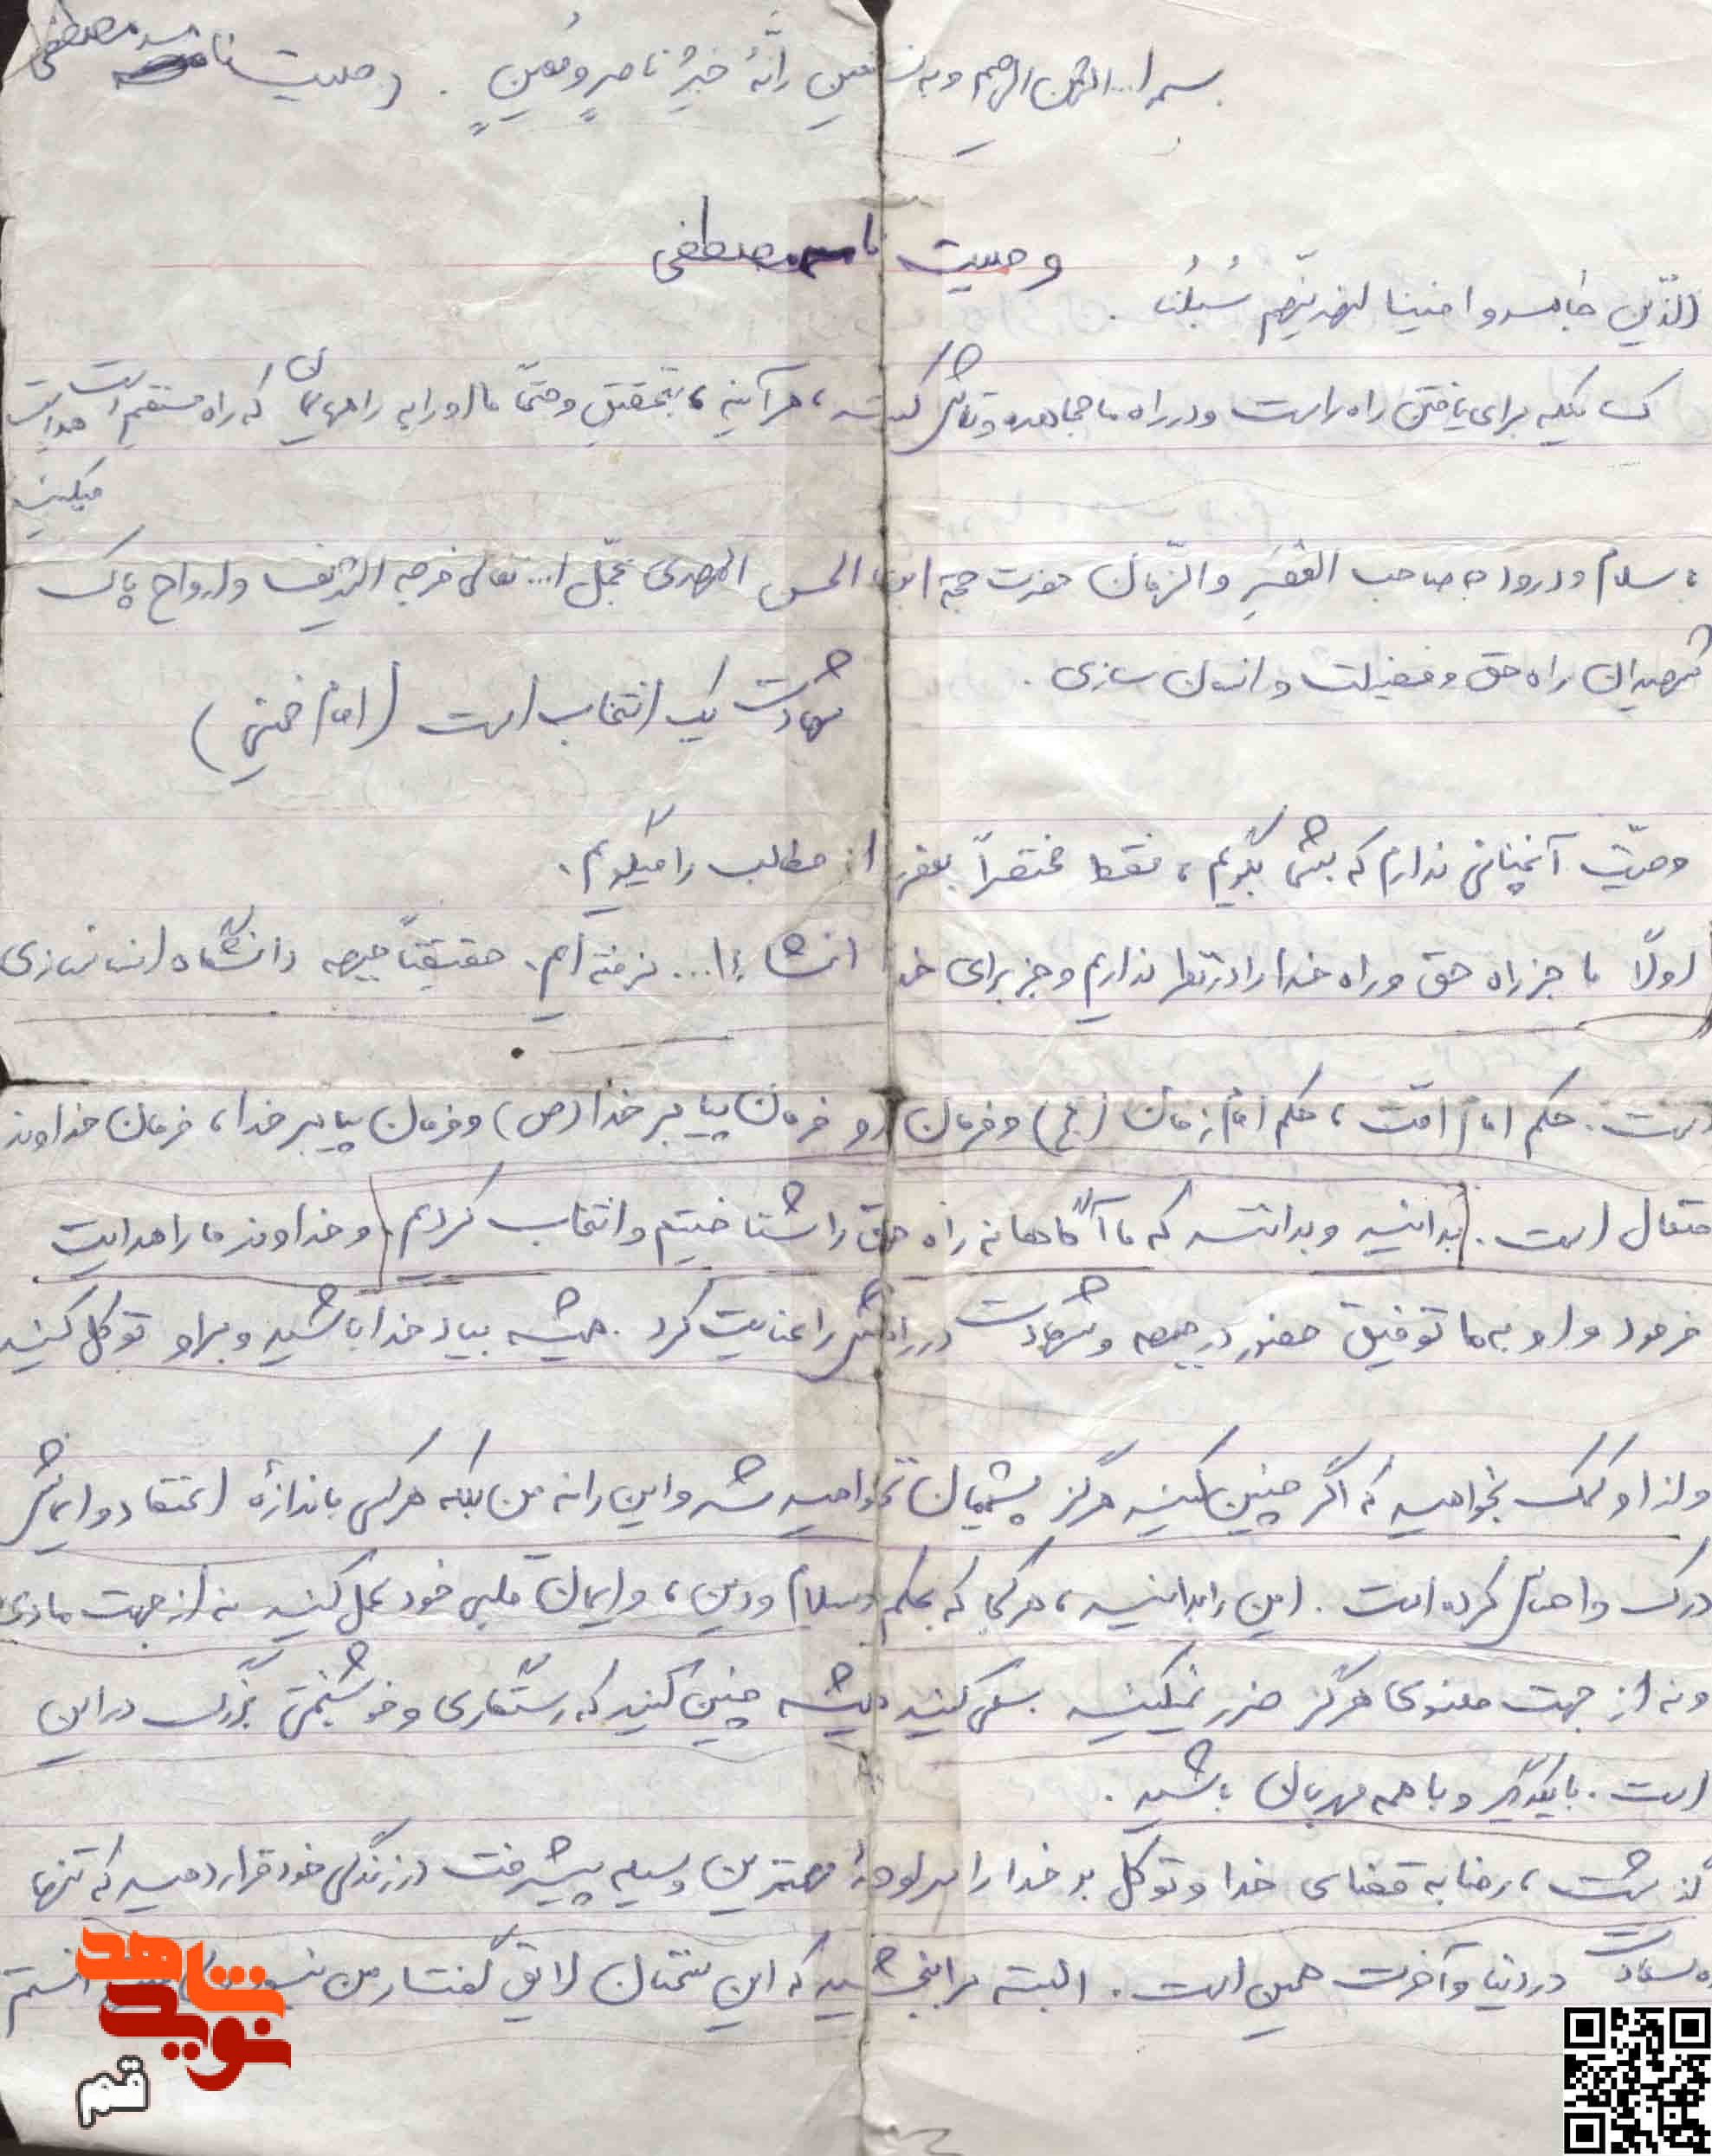 بسم ا... الرحمن الرحیم و به نستعین اِنَّهُ خَیرُ ناصرٍ و مُعینٍ . وصیت نامه مصطفی
وصیت نامه مصطفی
الذّین جاهدوا فینا لنهدینّهم سُبُلَنا .
کسانیکه برای یافتن راه راست و در راه ما مجاهده و تلاش کنند ، هر آینه ، بتحقیق و حتماً ما او را به راههایمان که راه مستقیم است هدایت
میکنیم
با سلام و درود به صاحب العَصر و الزّمان حضرت حجة ابن الحسن المهدی عجّل ا... تعالی فرجه الشریف و ارواح پاک
شهیدان راه حق و فضیلت و انسان سازی .
شهادت یک انتخاب است (امام خمینی)
وصیّت آنچنانی ندارم که بشما بگویم ، فقط مختصراً بعضی از مطالب را میگویم .
اولاً ما جز راه حق و راه خدا را در نظر نداریم و جز برای خدا انشاءا... نرفته‌ایم . حقیقتاً جبهه دانشگاه انسانسازی
است . حکم امام امّت ، حکم امام زمان (عج) و فرمان او فرمان پیامبر خدا (ص) و فرمان پیامبر خدا ، فرمان خداوند
متعال است . بدانید و بدانند که ما آگاهانه راه حق را شناختیم و انتخاب کردیم . و خداوند ما را هدایت
فرمود و او به ما توفیق حضور در جبهه و شهادت در راهش را عنایت کرد . همیشه بیاد خدا باشید و بر او توکل کنید
و از او کمک بخواهید که اگر چنین کنید هرگز پشیمان نخواهید شد و این را نه من بلکه هر کس باندازهٔ اعتقاد و ایمانش
درک و احساس کرده است . این را بدانید ، هر کجا که بحکم اسلام و دین ، و ایمان قلبی خود عمل کنید نه از جهت مادی
و نه از جهت معنوی هرگز ضرر نمیکنید سعی کنید همیشه چنین کنید که رستگاری و خوشبختی بزرگ در این
است . با یکدیگر و با همه مهربان باشید .
گذشت ، رضا به قضای خدا و توکل بر خدا را سرلوحه مهمترین وسیله پیشرفت در زندگی خود قرار دهید که تنها
راه سعادت در دنیا و آخرت همین است . البته مرا ببخشید که این سخنان لایق گفتار من نبود
شاهد
نوید
قم